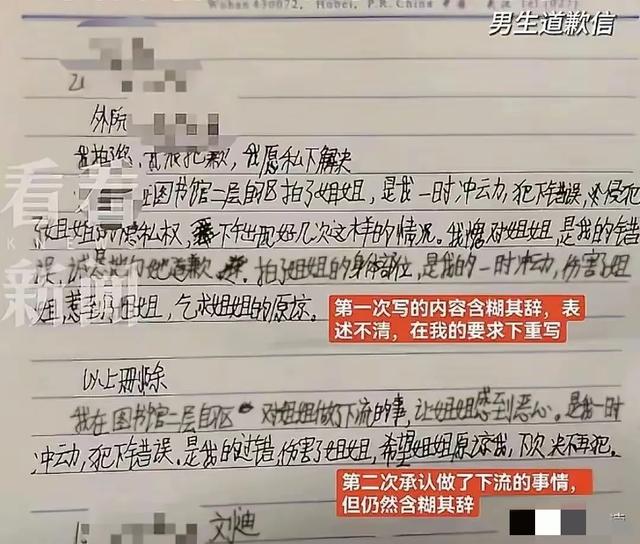 Wuhan 430072, Hubei, P.R.China 中国 武汉 Tel(027)
男生道歉信
外院
我拍了您，我很抱歉，我愿私下解决
在图书馆二层自D区拍了姐姐，是我一时冲动，犯下错误，侵犯
了姐姐的隐私权，下午出现好几次这样的情况。我愧对姐姐，是我的错
误，诚恳地向她道歉，拍了姐姐的身体部位，是我的一时冲动，伤害了姐
姐，惹到了姐姐，乞求姐姐的原谅。
第一次写的内容含糊其辞，表
述不清，在我的要求下重写
以上删除
我在图书馆二层自D区对姐姐做了下流的事，让姐姐感到恶心。是我一时
冲动，犯下错误。是我的过错，伤害了姐姐，希望姐姐原谅我，下次决不再犯。
第二次承认做了下流的事情，
但仍然含糊其辞
看看
新闻